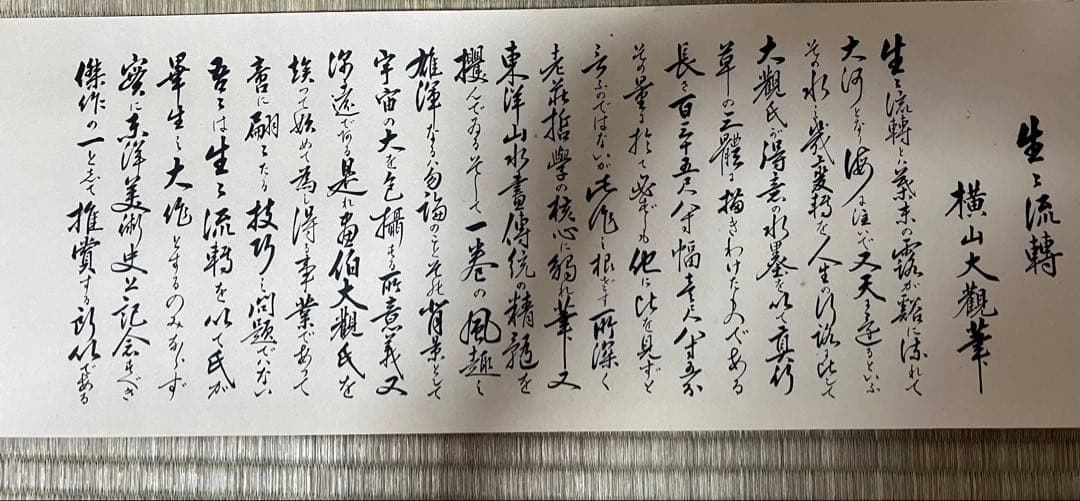 生々流轉
横山大觀筆
生々流轉とハ葉末の露が谿に流れて
大河となり海に注いで又天に還るといふ
その水の幾変轉を人生の行路に比して
大觀氏が得意の水墨を以て真行
草の三體に描きわけたものである
長さ百三十五尺八寸幅壱尺八寸五分
その量に於て必ずしも他に比を見ずと
云ふのではないが此作の根ざす所深く
老莊哲學の核心に觸れ筆又
東洋山水畫傳統の精髄を
攫んでゐるそして一巻の風趣の
雄渾なるハ勿論のことその背景として
宇宙の大を包攝する所意義又
深遠である是れ畫伯大觀氏を
俟って始めて為し得る事業であって
言に翩々たる技巧の問題でない
吾々は生々流轉を以て氏が
畢生の大作とするのみならず
實に東洋美術史上記念すべき
傑作の一として推賞する所以である